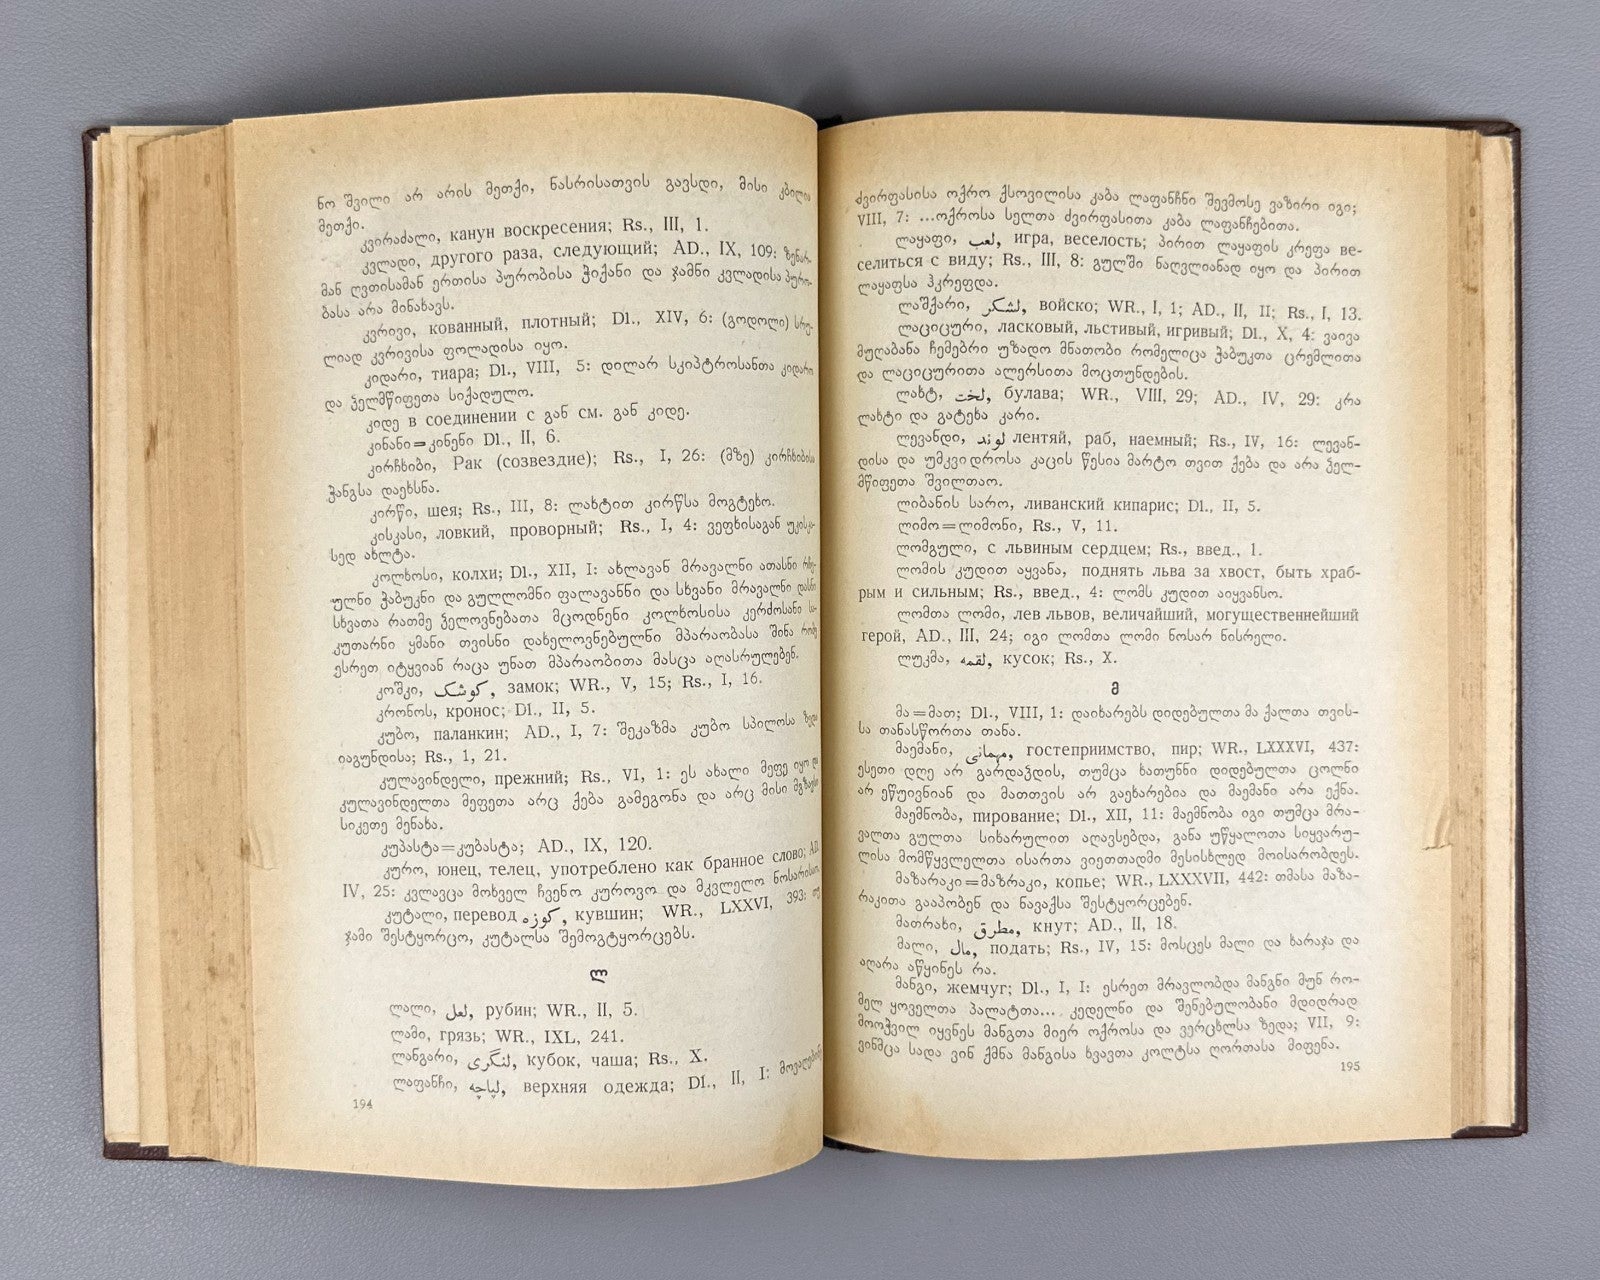 ნო შვილი არ არის მეთქი, ნასრისათვის გავსდი, მისი კბილია
მეთქი.
კვირაძალი, канун воскресения; Rs., III, 1.
კვლადი, другого раза, следующий; AD., IX, 109: ზენარ-
მან ღვთისამან ერთისა პურობისა ჭიქანი და ჯამნი კვლადისა პურო-
ბასა არა მინახავს.
კვრივი, кованный, плотный; Dl., XIV, 6: (გოდოლი) სრუ-
ლიად კვრივისა ფოლადისა იყო.
კიდარი, тиара; Dl., VIII, 5: დილარ სკიპტროსანთა კიდარი
და ჴელმწიფეთა სიქადულო.
კიდე в соединении с გან см. გან კიდე.
კინანი=კინენი Dl., II, 6.
კირჩხიბი, Рак (созвездие); Rs., I, 26: (მზე) კირჩხიბისა
ჭანგსა დაეხსნა.
კირწი, шея; Rs., III, 8: ლახტით კირწსა მოგტეხო.
კისკასი, ловкий, проворный; Rs., I, 4: ვეფხისაგან უკისკა-
სედ ახლტა.
კოლხოსი, колхи; Dl., XII, I: ახლავან მრავალნი ათასნი რჩე-
ულნი ჭაბუკნი და გულლომნი ფალავანნი და სხვანი მრავალნი დასნი
სხვათა რათმე ჴელოვნებათა მცოდნენი კოლხოსისა კერძოსანი სა-
კუთარნი ყმანი თვისნი დახელოვნებულნი მპარაობასა შინა რომე
ესრეთ იტყვიან რაცა უნათ მპარაობითა მასცა აღასრულებენ.
კოშკი, کوشک, замок; WR., V, 15; Rs., I, 16.
კრონოს, кронос; Dl., II, 5.
კუბო, паланкин; AD., I, 7: შეკაზმა კუბო სპილოსა ზედა
იაგუნდისა; Rs., 1, 21.
კულავინდელი, прежний; Rs., VI, 1: ეს ახალი მეფე იყო და
კულავინდელთა მეფეთა არც ქება გამეგონა და არც მისი მგზავსი
სიკეთე მენახა.
კუპასტა=კუბასტა; AD., IX, 120.
კურო, юнец, телец, употреблено как бранное слово; AD.
IV, 25: კვლავცა მოხველ ჩვენო კუროვო და მკვლელო ნოსარისაო
კუტალი, перевод کوزه, кувшин; WR., LXXVI, 393: თუ
ჯამი შესტყორცო, კუტალსა შემოგტყორცებს.
ლ
ლალი, لعل, рубин; WR., II, 5.
ლამი, грязь; WR., IXL, 241.
ლანგარი, لنگری, кубок, чаша; Rs., X.
ლაფანჩი, لپاچه, верхняя одежда; Dl., II, I: მოვაღებინე
194
ძვირფასისა ოქრო ქსოვილისა კაბა ლაფანჩნი შევმოსე ვაზირი იგი;
VIII, 7: ...ოქროსა სელთა ძვირფასითა კაბა ლაფანჩებითა.
ლაყაფი, لعب, игра, веселость; პირით ლაყაფის კრეფა ве-
селиться с виду; Rs., III, 8: გულში ნაღვლიანად იყო და პირით
ლაყაფსა ჰკრეფდა.
ლაშქარი, لشکر, войско; WR., I, 1; AD., II, II; Rs., I, 13.
ლაციცური, ласковый, льстивый, игривый; Dl., X, 4: ვაივა
მუღაბანა ჩემებრი უზადო მნათობი რომელიცა ჭაბუკთა ცრემლითა
და ლაციცურითა ალერსითა მოცთუნდების.
ლახტ, لخت, булава; WR., VIII, 29; AD., IV, 29: კრა
ლახტი და გატეხა კარი.
ლევანდი, لوند лентяй, раб, наемный; Rs., IV, 16: ლევან-
დისა და უმკვიდროსა კაცის წესია მარტო თვით ქება და არა ჴელ-
მწიფეთა შვილთაო.
ლიბანის სარო, ливанский кипарис; Dl., II, 5.
ლიმო=ლიმონი, Rs., V, 11.
ლომგული, с львиным сердцем; Rs., введ., 1.
ლომის კუდით აყვანა, поднять льва за хвост, быть храб-
рым и сильным; Rs., введ., 4: ლომს კუდით აიყვანსო.
ლომთა ლომი, лев львов, величайший, могущественнейший
герой, AD., III, 24; იგი ლომთა ლომი ნოსარ ნისრელი.
ლუკმა, لقمه, кусок; Rs., X.
მ
მა=მათ; Dl., VIII, 1: დაიხარებს დიდებულთა მა ქალთა თვის-
სა თანასწორთა თანა.
მაემანი, مهمانی, гостеприимство, пир; WR., LXXXVI, 437:
ესეთი დღე არ გარდაჴდის, თუმცა ხათუნნი დიდებულთა ცოლნი
არ ეწუივნიან და მათთვის არ გაეხარებია და მაემანი არა ექნა.
მაემნობა, пирование; Dl., XII, 11: მაემნობა იგი თუმცა მრა-
ვალთა გულთა სიხარულით აღავსებდა, განა უწყალოთა სიყვარუ-
ლისა მომწყვლელთა ისართა ვიეთთადმი მესისხლედ მოისარობდეს.
მაზარაკი=მაზრაკი, копье; WR., LXXXVII, 442: თმასა მაზა-
რაკითა გააპობენ და ნავაქსა შესტყორცებენ.
მათრახი, مطرق, кнут; AD., II, 18.
მალი, مال, подать; Rs., IV, 15: მოსცეს მალი და ხარაჯა და
აღარა აწყინეს რა.
მანგი, жемчуг; Dl., I, I: ესრეთ მრავლობდა მანგნი მუნ რო-
მელ ყოველთა პალატთა... კედელნი და შენებულობანი მდიდრად
მოოჭვილ იყვნეს მანგთა მიერ ოქროსა და ვერცხლსა ზედა; VII, 9:
ვინმცა სადა ვინ ქმნა მანგისა ხვავთა კოლტსა ღორთასა მიფენა.
195